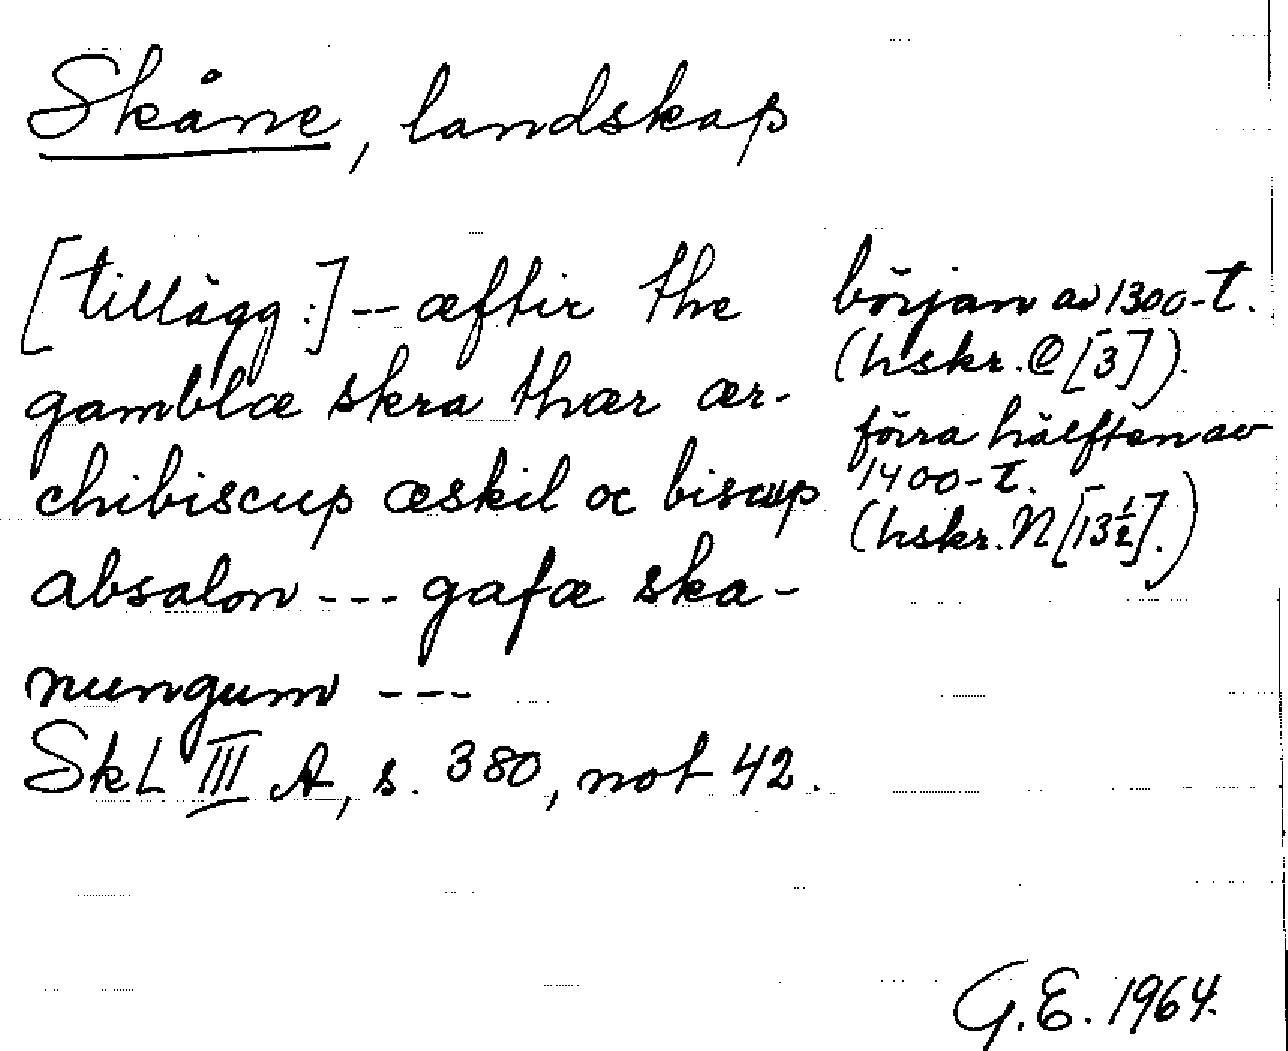 Skåne, landskap
[tillägg:] -- æftir the
gamblæ skra thær ær-
chibiscup æskil oc biscup
absalon --- gafæ ska-
nungum ---
SkL III A, s. 380, not 42.
början av 1300-t.
(hskr. C [3]).
förra hälften av
1400-t.
(hskr. N [13½].)
G.E. 1964.